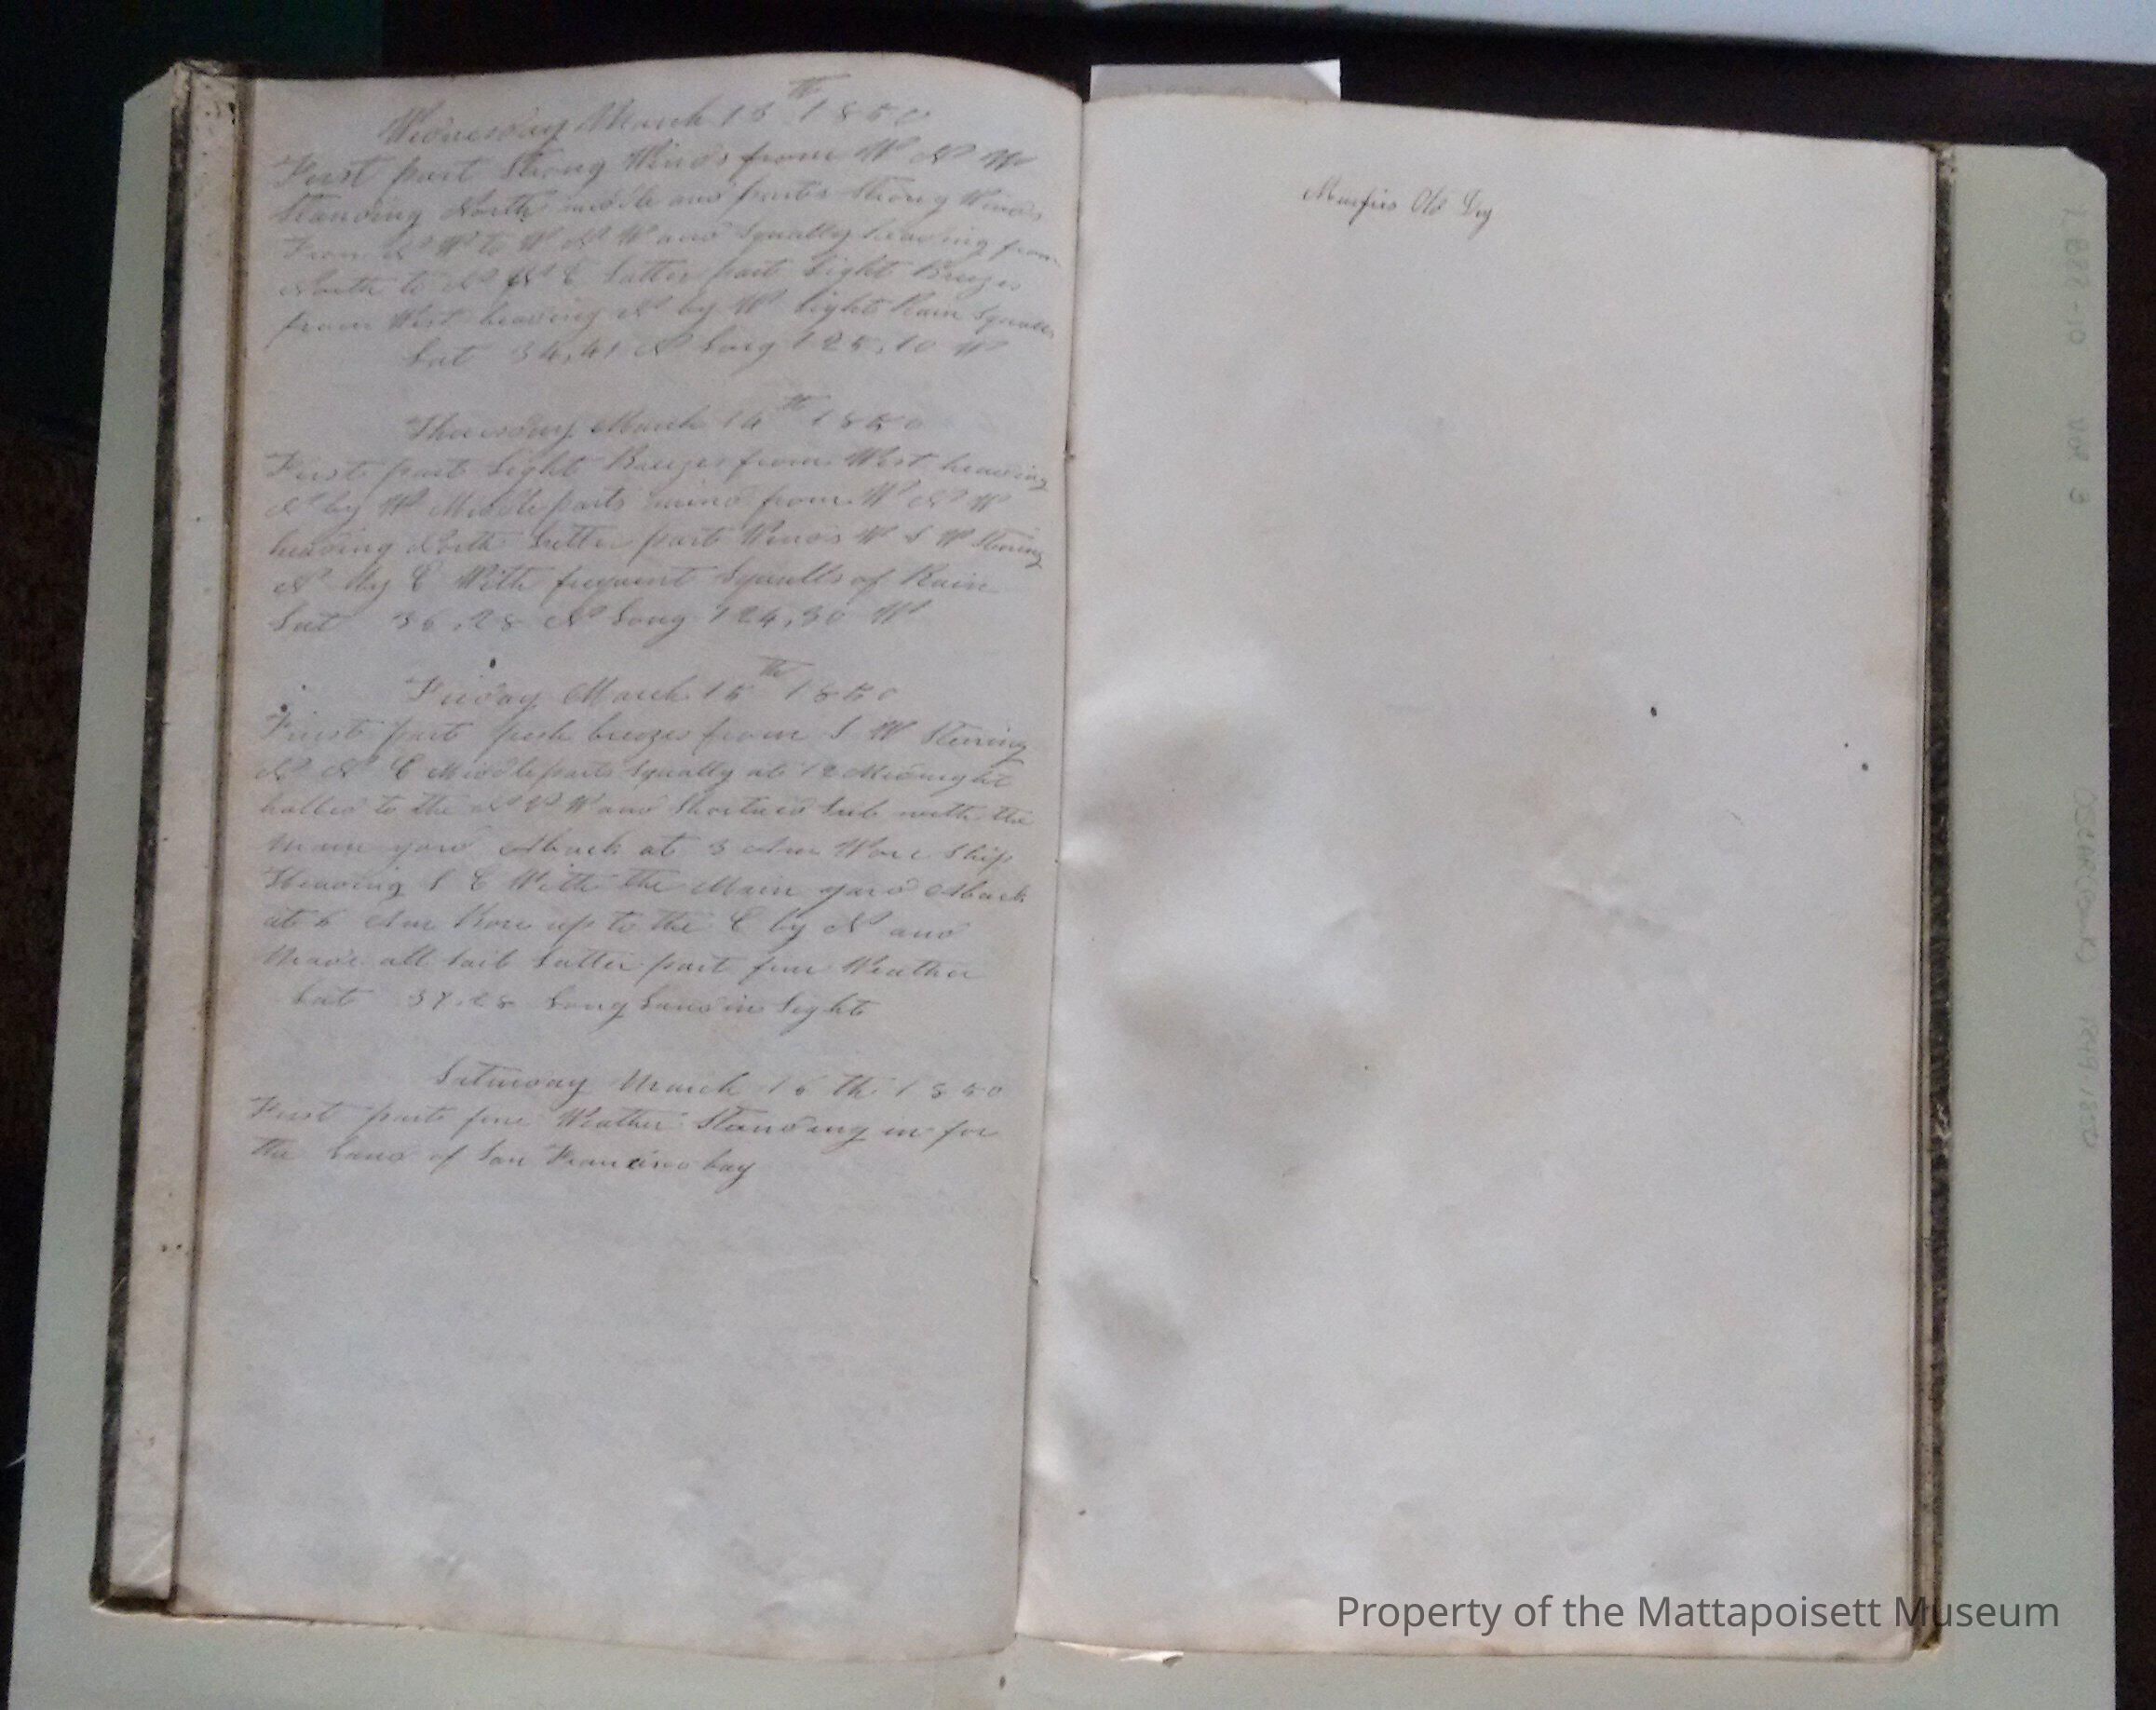 Wednesday March 13th 1850
First part Strong Winds from W N W
Standing North middle and parts Strong Winds
From N W to W N W and Squally heading from
North to N N E Latter part Light Breezes
from West heading N by W light Rain Squalls
Lat 34,41 N Long 125,10 W
Thursday March 14th 1850
First part Light Breezes from West heading
N by W Middle parts wind from W N W
heading North Latter part Winds W S W Stering
N by E With frequent Squalls of Rain
Lat 36,28 N Long 124,30 W
Friday March 15th 1850
First part fresh breezes from S W Stering
N N E Middle parts Squally at 12 Midnight
halled to the N W and Shortned Sail with the
Main yard Aback at 3 Am Wore Ship
Heading S E With the Main yard Aback
at 6 Am Bore up to the E by N and
Made all Sail Latter part fine Weather
Lat 37,28 Long Land in Sight
Saturday March 16 th 1850
First part fine Weather Standing in for
the Land of San Francisco bay
Old
1.B88-10 Vol 3
1849-1850
Property of the Mattapoisett Museum